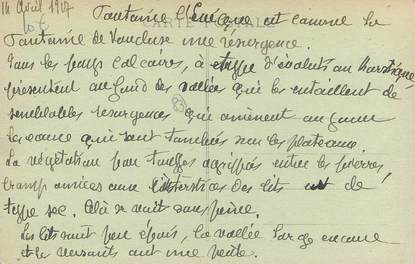 14 Avril 1917
CARTE POSTALE
Fontaine l'Evêque est comme la
Fontaine de Vaucluse une résurgence.
Tous les pays calcaires, à type d'évolution Karstique
présentent au fond des vallées qui les entaillent de
semblables résurgences qui amènent au jour
les eaux qui sont tombées sur les plateaux.
La végétation par touffes agrippées entre les pierres,
cramponnées aux interstices des lits est de
type sec. Cela se voit sans peine.
Les lits sont peu épais, la vallée large encore
et les versants ont une pente.